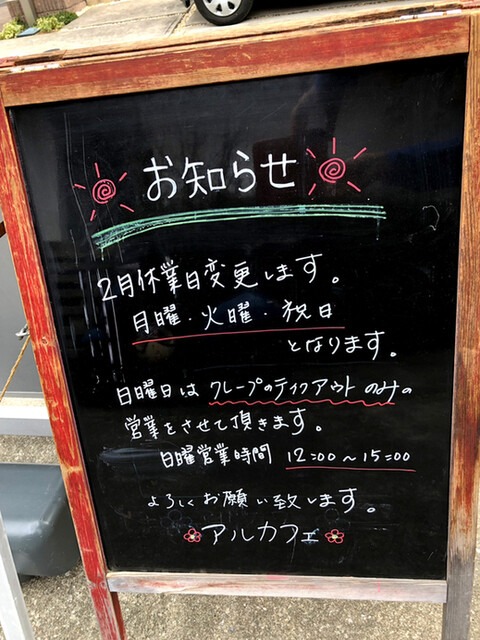 お知らせ
2月休業日変更します。
月曜・火曜・祝日
となります。
日曜日はクレープのテイクアウトのみの
営業をさせて頂きます。
日曜営業時間 12:00～15:00
よろしくお願い致します。
アルカフェ